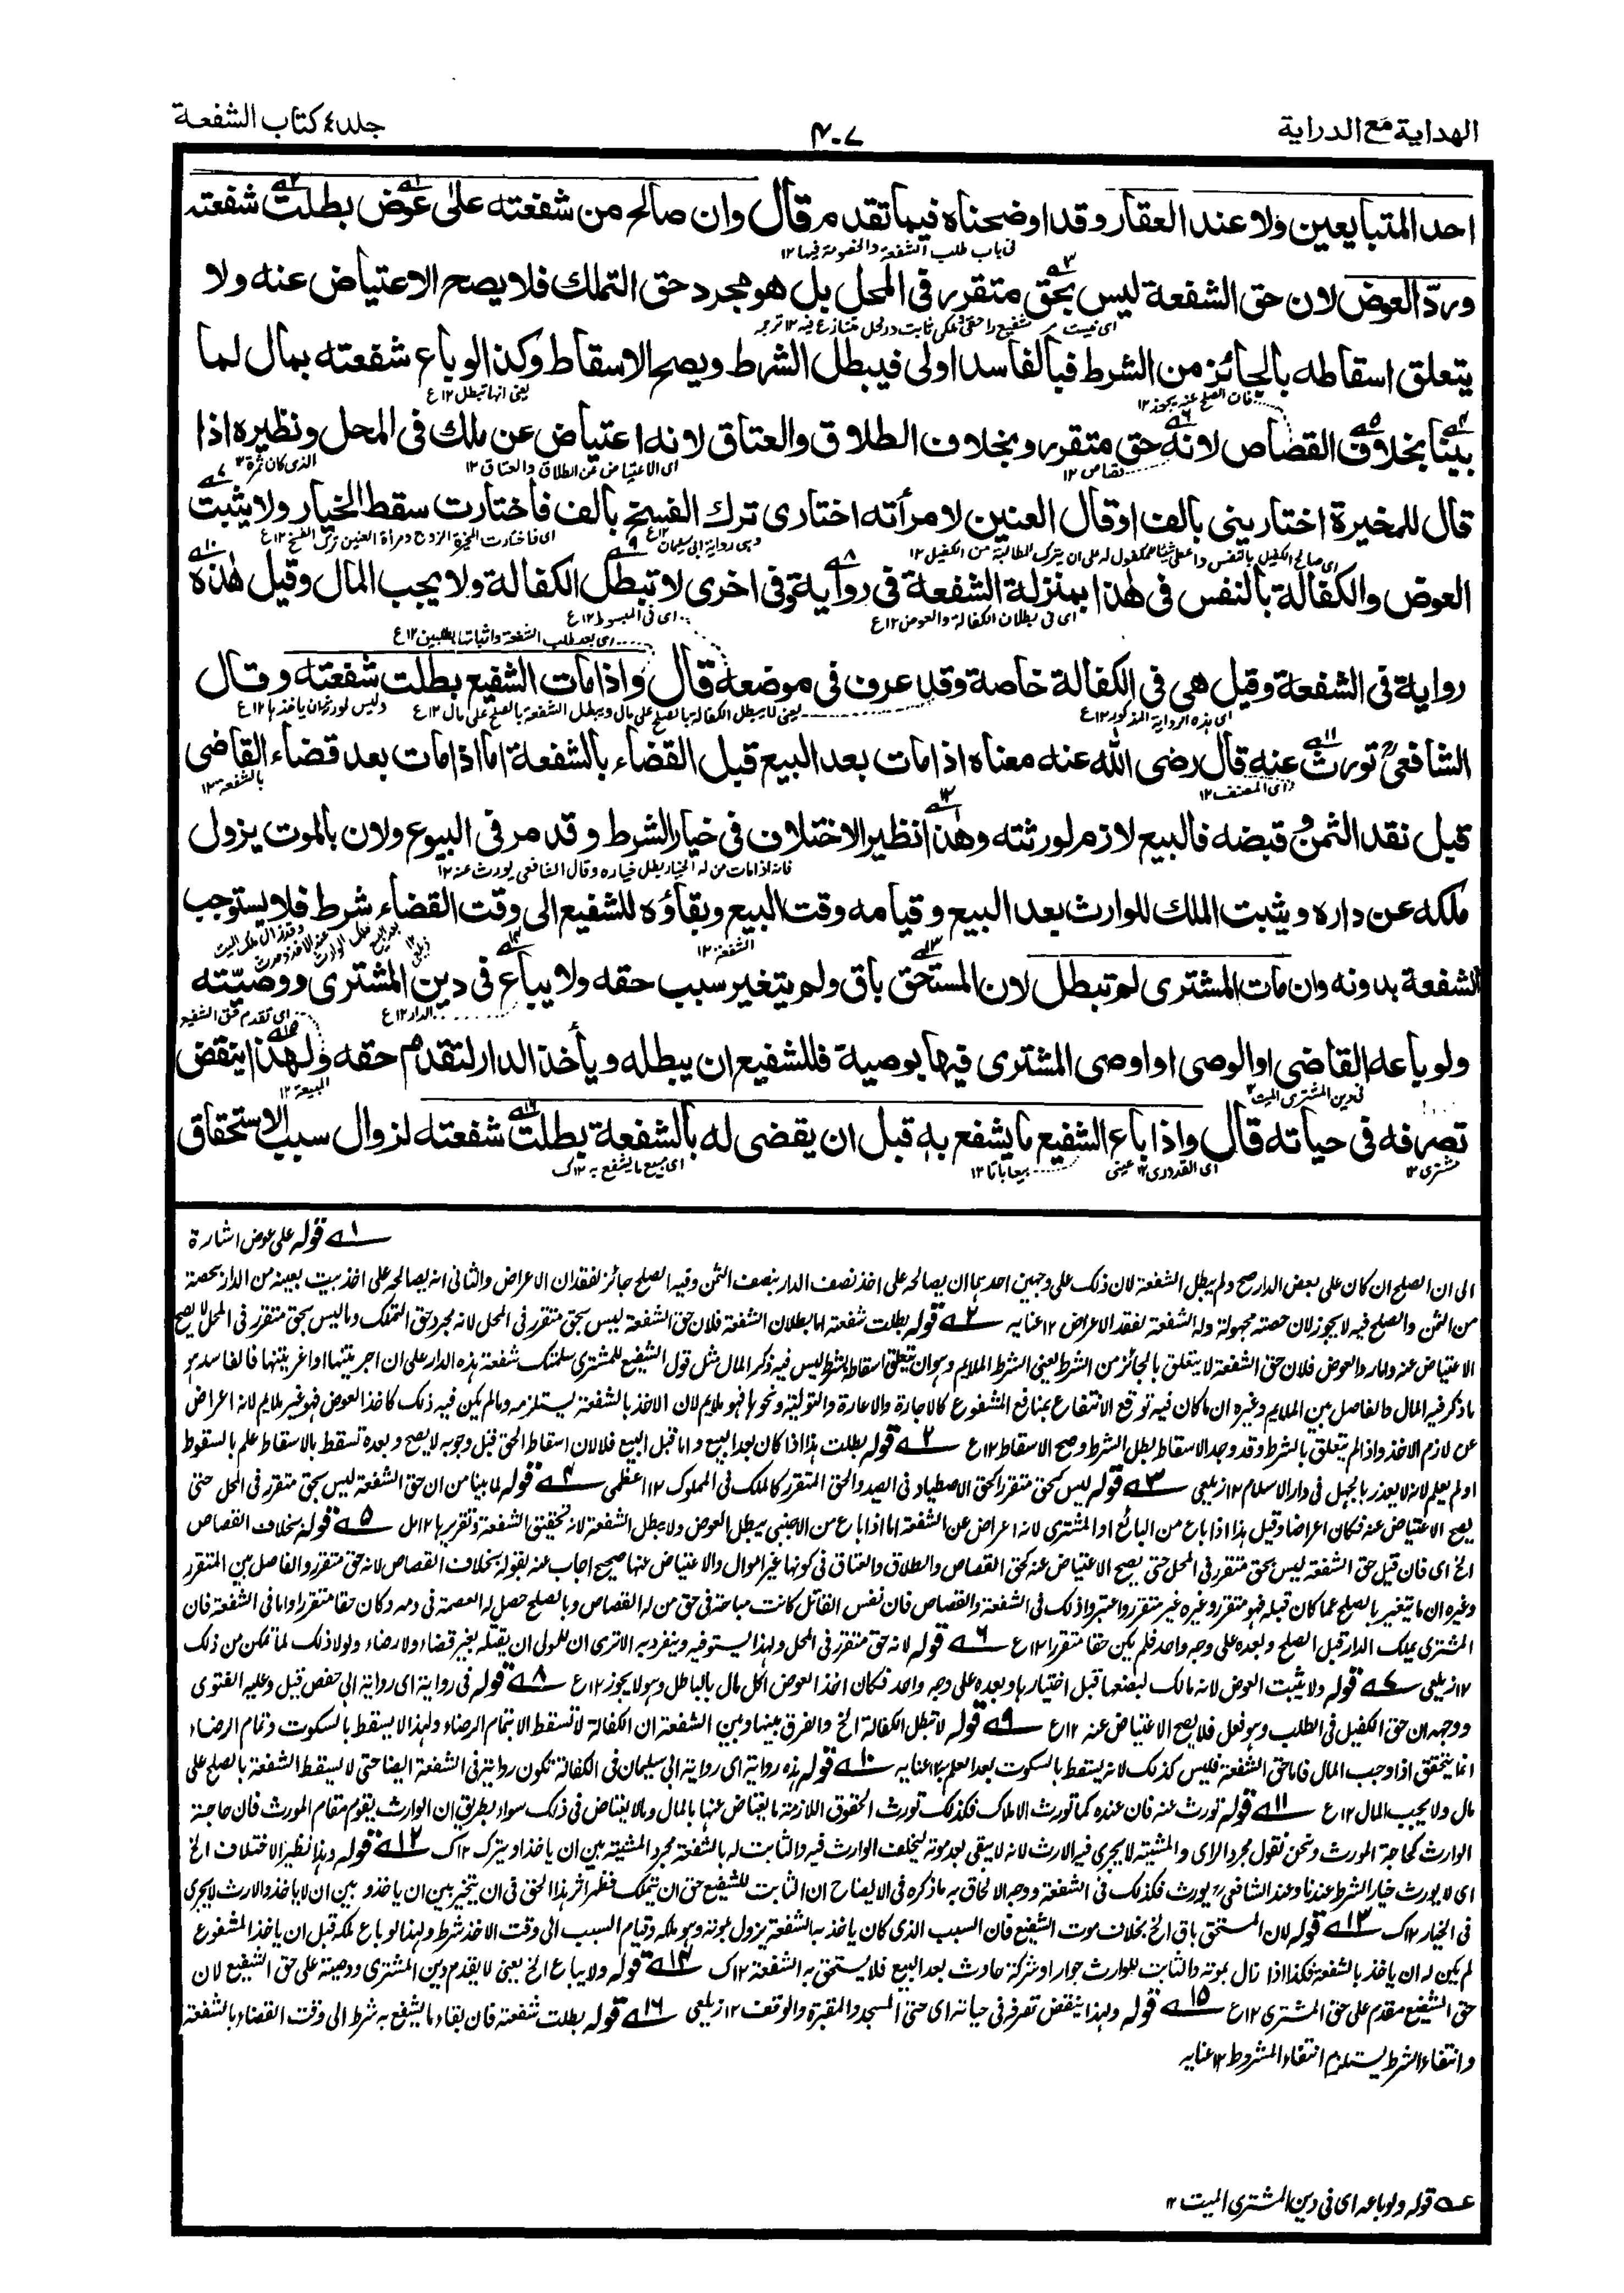 الهداية مع الدراية
۴۰۷
جلد ٤ كتاب الشفعة
احد المتبايعين ولا عند العقار وقد اوضحناه فيما تقدم قال وان صالح من شفعته على عوض بطلت شفعته
فى باب طلب الشفعة والخصومة فيها ١٢
وردّ العوض لان حق الشفعة ليس بحق متقرر فى المحل بل هو مجرد حق التملك فلا يصح الاعتياض عنه ولا
يتعلق اسقاطه بالجائز من الشرط فبالفاسد اولى فيبطل الشرط ويصح الاسقاط وكذا لو باع شفعته بمال لما
يعنى انها تبطل ١٢ ع
بينا بخلاف القصاص لانه حق متقرر وبخلاف الطلاق والعتاق لانه اعتياض عن ملك فى المحل ونظيره اذا
قصاص ١٢
اى الاعتياض عن الطلاق والعتاق ١٢
قال للمخيرة اختارينى بالف او قال العنين لامرأته اختارى ترك الفسخ بالف فاختارت سقط الخيار ولا يثبت
وهى رواية ابى سليمان ١٢ ع
العوض والكفالة بالنفس فى هذا بمنزلة الشفعة فى رواية وفى اخرى لا تبطل الكفالة ولا يجب المال وقيل هذه
اى فى بطلان الكفالة والعوض ١٢ ع
اى فى المبسوط ١٢ ع
اى بعد طلب الشفعة واثباتها بطلبين ١٢ ع
رواية فى الشفعة وقيل هى فى الكفالة خاصة وقد عرف فى موضعه قال واذا مات الشفيع بطلت شفعته وقال
اى هذه الرواية المذكور ١٢ ع
الشافعى تورث عنه قال رضى الله عنه معناه اذا مات بعد البيع قبل القضاء بالشفعة اما اذا مات بعد قضاء القاضى
اى المصنف ١٢
بالشفعة ١٢
قبل نقد الثمن وقبضه فالبيع لازم لورثته وهذا نظير الاختلاف فى خيار الشرط وقد مر فى البيوع ولان بالموت يزول
فانه اذا مات من له الخيار بطل خياره وقال الشافعى يورث عنه ١٢
ملكه عن داره ويثبت الملك للوارث بعد البيع وقيامه وقت البيع وبقاؤه للشفيع الى وقت القضاء شرط فلا يستوجب
الشفعة ١٢
الشفعة بدونه وان مات المشترى لم تبطل لان المستحق باق ولم يتغير سبب حقه ولا يباع فى دين المشترى ووصيّته
الدار ١٢ ع
اى تقدم حق الشفيع
ولو باعه القاضى او الوصى او اوصى المشترى فيها بوصية فللشفيع ان يبطله ويأخذ الدار لتقدم حقه ولهذا ينقض
فى دين المشترى الميت ١٢
المبيعة ١٢
تصرفه فى حياته قال واذا باع الشفيع ما يشفع به قبل ان يقضى له بالشفعة بطلت شفعته لزوال سبب الاستحقاق
مشترى ١٢
اى القدورى ١٢ عينى
بيعا باتا ١٢
اى مبيع ما يشفع به ١٢ ك
١ قوله على عوض اشارة
الى ان الصلح ان كان على بعض الدار صح ولم يبطل الشفعة لان ذلك على وجهين احدهما ان يصالحه على اخذ نصف الدار بنصف الثمن وفيه الصلح جائز لفقدان الاعراض والثانى انه يصالحه على اخذ بيت بعينه من الدار بحصته
من الثمن والصلح فيه لا يجوز لان حصته مجهولة وله الشفعة لفقد الاعراض ١٢ عنايه ٢ قوله بطلت شفعته اما بطلان الشفعة فلان حق الشفعة ليس بحق متقرر فى المحل لانه مجرد حق التملك وما ليس بحق متقرر فى المحل لا يصح
الاعتياض عنه واما رد العوض فلان حق الشفعة لا يتعلق بالجائز من الشرط يعنى الشرط الملايم وهو ان يتعلق اسقاط بشرط ليس فيه ذكر المال مثل قول الشفيع للمشترى سلمتك شفعة هذه الدار على ان اجرتنيها او اعرتنيها فالفاسد هو
ما ذكر فيه المال والفاصل بين الملايم وغيره ان ما كان فيه توقع الانتفاع بمنافع المشفوع كالاجارة والاعارة والتولية ونحوها فهو ملايم لان الاخذ بالشفعة يستلزمه وما لم يكن فيه ذلك كاخذ العوض فهو غير ملايم لانه اعراض
عن لازم الاخذ واذا لم يتعلق بالشرط وقد وجد الاسقاط بطل الشرط وصح الاسقاط ١٢ ع ٢ قوله بطلت هذا اذا كان بعد البيع واما قبل البيع فلا لان اسقاط الحق قبل وجوبه لا يصح وبعده تسقط بالاسقاط علم بالسقوط
او لم يعلم لانه لا يعذر بالجهل فى دار الاسلام ١٢ زيلعى ٣ قوله ليس كحق متقرر كحق الاصطياد فى الصيد والحق المتقرر كالملك فى المملوك ١٢ اعظمى ٤ قوله لما بينا من ان حق الشفعة ليس بحق متقرر فى المحل حتى
يصح الاعتياض عنه فكان اعراضا وقيل هذا اذا باع من البائع او المشترى لانه اعراض عن الشفعة اما اذا باع من الاجنبى يبطل العوض ولا يبطل الشفعة لانه تحقيق الشفعة وتقريرها ١٢ مل ٥ قوله بخلاف القصاص
الخ اى فان قيل حق الشفعة ليس بحق متقرر فى المحل حتى يصح الاعتياض عنه كحق القصاص والطلاق والعتاق فى كونها غير اموال والاعتياض عنها صحيح اجاب عنه بقوله بخلاف القصاص لانه حق متقرر والفاصل بين المتقرر
وغيره ان ما يتغير بالصلح عما كان قبله فهو متقرر وغيره غير متقرر واعتبر ذلك فى الشفعة والقصاص فان نفس القاتل كانت مباحة فى حق من له القصاص وبالصلح حصل له العصمة فى دمه وكان حقا متقررا واما فى الشفعة فان
المشترى يملك الدار قبل الصلح وبعده على وجه واحد فلم يكن حقا متقررا ١٢ ع ٦ قوله لانه حق متقرر فى المحل ولهذا يستوفيه وينفرد به الاترى ان للولى ان يقتله بغير قضاء ولا رضاء ولولا ذلك لما تمكن من ذلك
١٢ زيلعى ٧ قوله ولا يثبت العوض لانه مالك لبضعها قبل اختيارها وبعده على وجه واحد فكان اخذ العوض اكل مال بالباطل وهو لا يجوز ١٢ ع ٨ قوله فى رواية اى رواية ابى حفص قيل وعليه الفتوى
ووجهه ان حق الكفيل فى الطلب وهو فعل فلا يصح الاعتياض عنه ١٢ ع ٩ قوله لا تبطل الكفالة الخ والفرق بينها وبين الشفعة ان الكفالة لا تسقط الا بتمام الرضاء ولهذا لا يسقط بالسكوت وتمام الرضاء
انما يتحقق اذا وجب المال فاما حق الشفعة فليس كذلك لانه يسقط بالسكوت بعد العلم ١٢ عنايه ١٠ قوله هذه رواية اى رواية ابى سليمان فى الكفالة تكون رواية فى الشفعة ايضا حتى لا يسقط الشفعة بالصلح على
مال ولا يجب المال ١٢ ع ١١ قوله تورث عنه فان عنده كما تورث الاملاك فكذلك تورث الحقوق اللازمة ما يعتاض عنها بالمال وما لا يعتاض فى ذلك سواء بطريق ان الوارث يقوم مقام المورث فان حاجة
الوارث كحاجة المورث ونحن نقول مجرد الراى والمشية لا يجرى فيه الارث لانه لا يبقى بعد موته ليخلف الوارث فيه والثابت له بالشفعة مجرد المشية بين ان ياخذ او يترك ١٢ ك ١٢ قوله وهذا نظير الاختلاف الخ
اى لا يورث خيار الشرط عندنا وعند الشافعى يورث فكذلك فى الشفعة ووجه الالحاق به ما ذكره فى الايضاح ان الثابت للشفيع حق ان يتملك فظهر اثر هذا الحق فى ان يتخير بين ان ياخذ وبين ان لا ياخذ والارث لا يجرى
فى الخيار ١٢ ك ١٣ قوله لان المستحق باق الخ بخلاف موت الشفيع فان السبب الذى كان ياخذ به الشفعة يزول بموته وهو ملكه وقيام السبب الى وقت الاخذ شرط ولهذا لو باع ملكه قبل ان ياخذ المشفوع
لم يكن له ان ياخذ بالشفعة فكذا اذا زال بموته والثابت للوارث جوار او شركة حادث بعد البيع فلا يستحق به الشفعة ١٢ ك ١٤ قوله ولا يباع الخ يعنى لا يقدم دين المشترى ووصيته على حق الشفيع لان
حق الشفيع مقدم على حق المشترى ١٢ ع ١٥ قوله ولهذا ينقض تصرفه فى حياته اى حتى المسجد والمقبرة والوقف ١٢ زيلعى ١٦ قوله بطلت شفعته فان بقاء ما يشفع به شرط الى وقت القضاء بالشفعة
وانتفاء الشرط يستلزم انتفاء المشروط ١٢ عنايه
عه قوله ولو باعه اى فى دين المشترى الميت ١٢